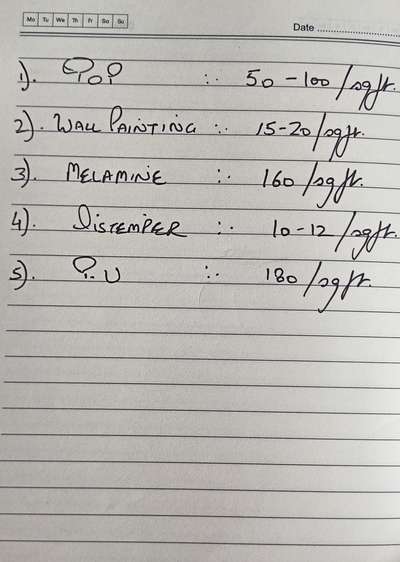 Mo Tu We Th Fr Sa Su
Date
1). POP :- 50-100/sqft.
2). WALL PAINTING :- 15-20/sqft.
3). MELAMINE :- 160/sqft.
4). DISTEMPER :- 10-12/sqft.
5). P.U :- 180/sqft.